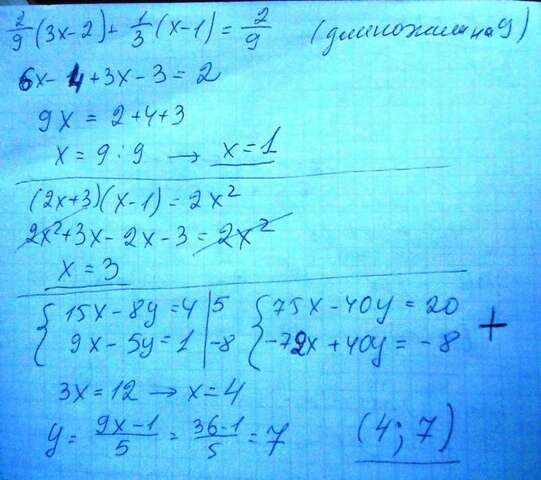 2/9 (3x-2) + 1/3 (x-1) = 2/9 (домножим на 9)
6x - 4 + 3x - 3 = 2
9x = 2+4+3
x = 9 : 9 → x = 1
(2x+3)(x-1) = 2x²
2x² + 3x - 2x - 3 = 2x²
x = 3
{ 15x - 8y = 4 | 5 { 75x - 40y = 20
9x - 5y = 1 | -8 -72x + 40y = -8 +
3x = 12 → x = 4
y = (9x-1)/5 = (36-1)/5 = 7 (4; 7)